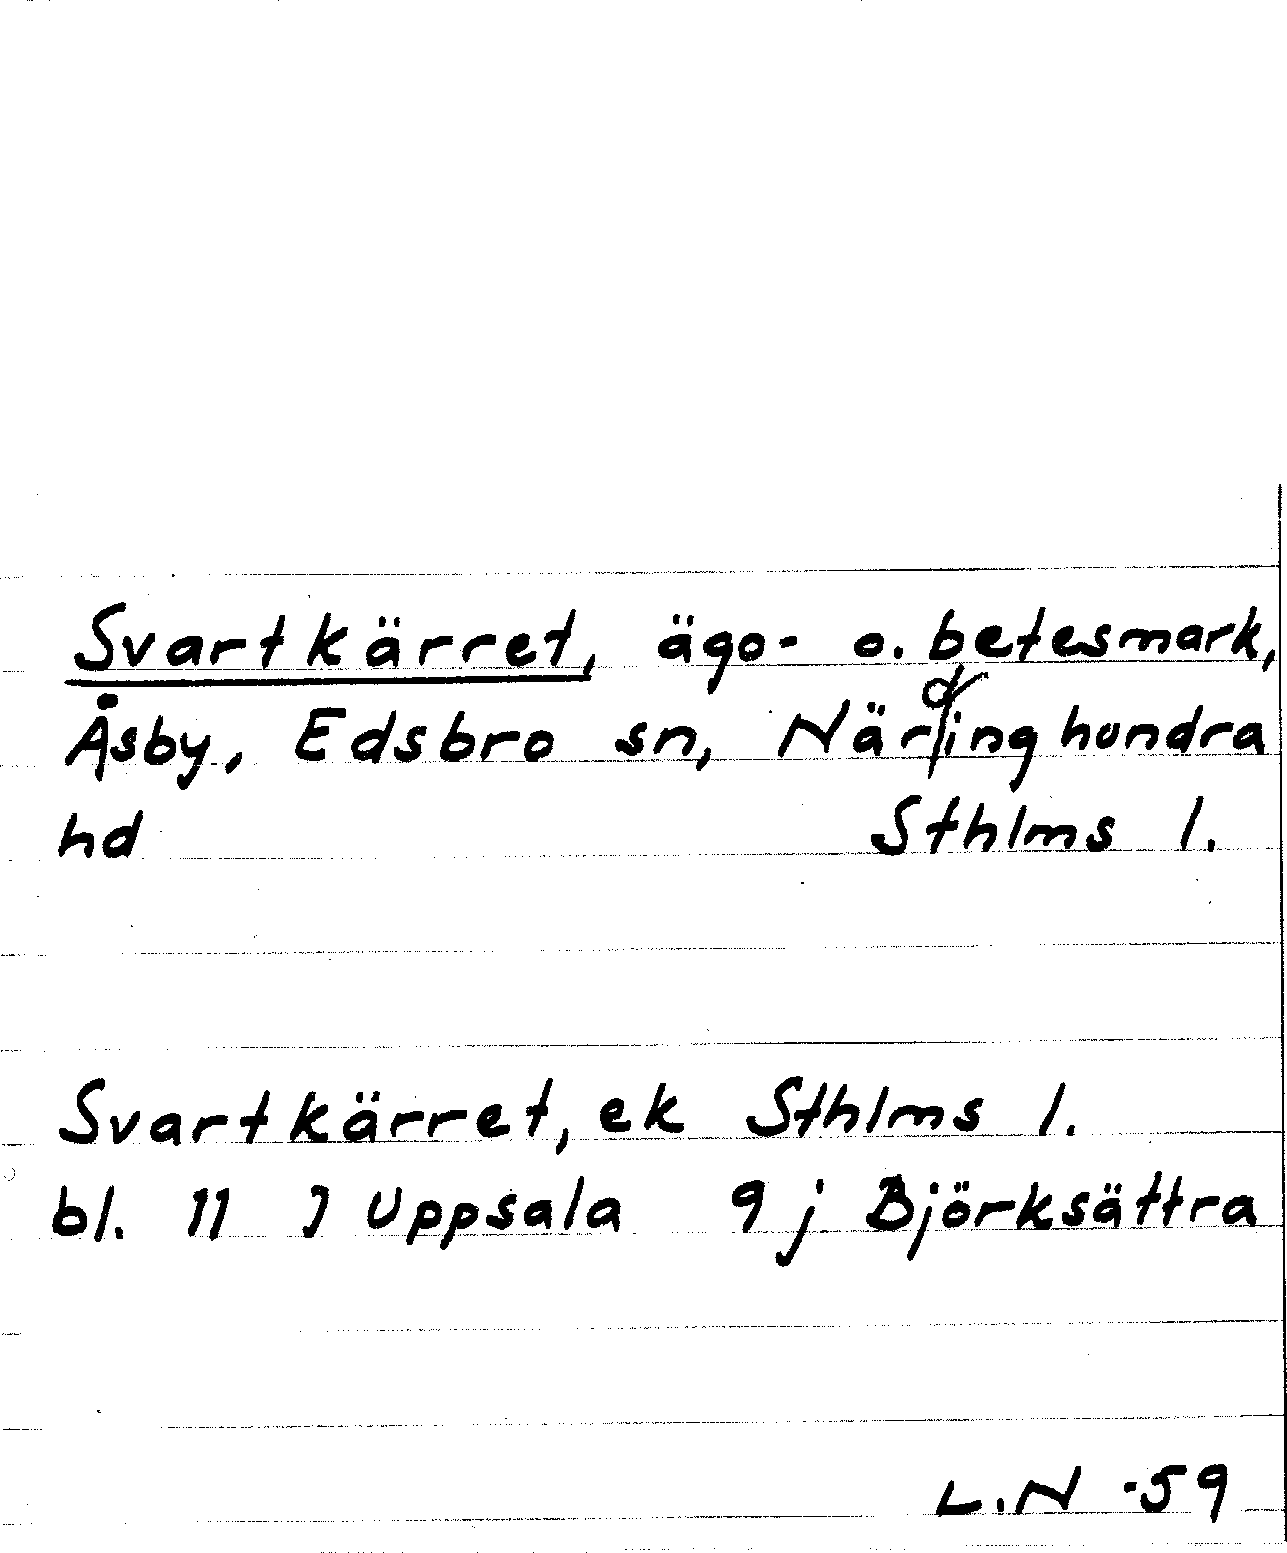 Svartkärret, ägo- o. betesmark,
Åsby, Edsbro sn, Närdinghundra
hd Sthlms l.
Svartkärret, ek Sthlms l.
bl. 11 J Uppsala 9 j Björksättra
L.N -59